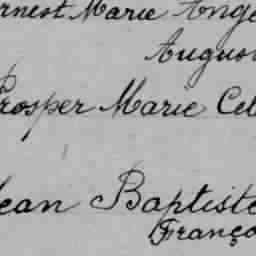 rnest Marie Ange
August
Prosper Marie Cel
Jean Baptiste
Franço